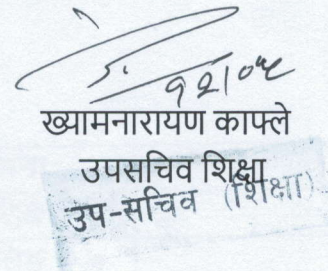 ख्यामनारायण काफ्ले
उपसचिव शिक्षा
उप-सचिव (शिक्षा)